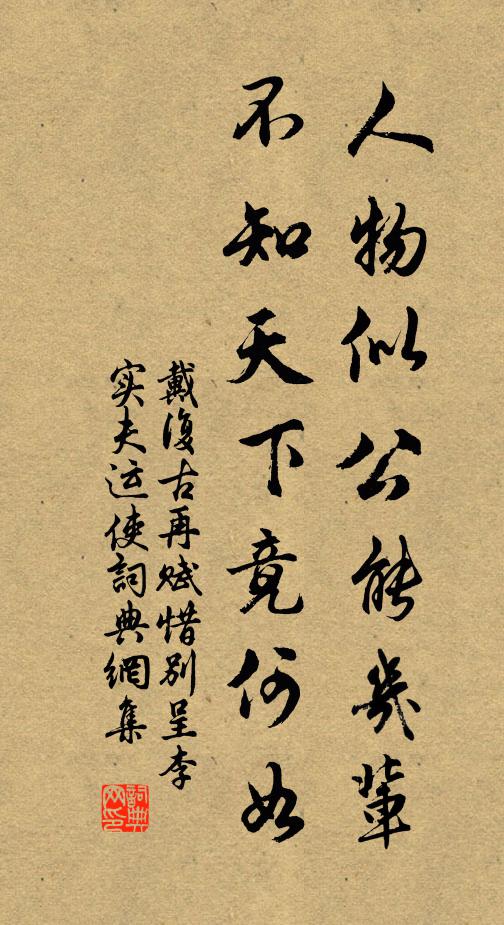 人物似公能幾輩
不知天下竟何如
戴復古再赋惜别呈李
实夫运使詞典網集
詞典網印